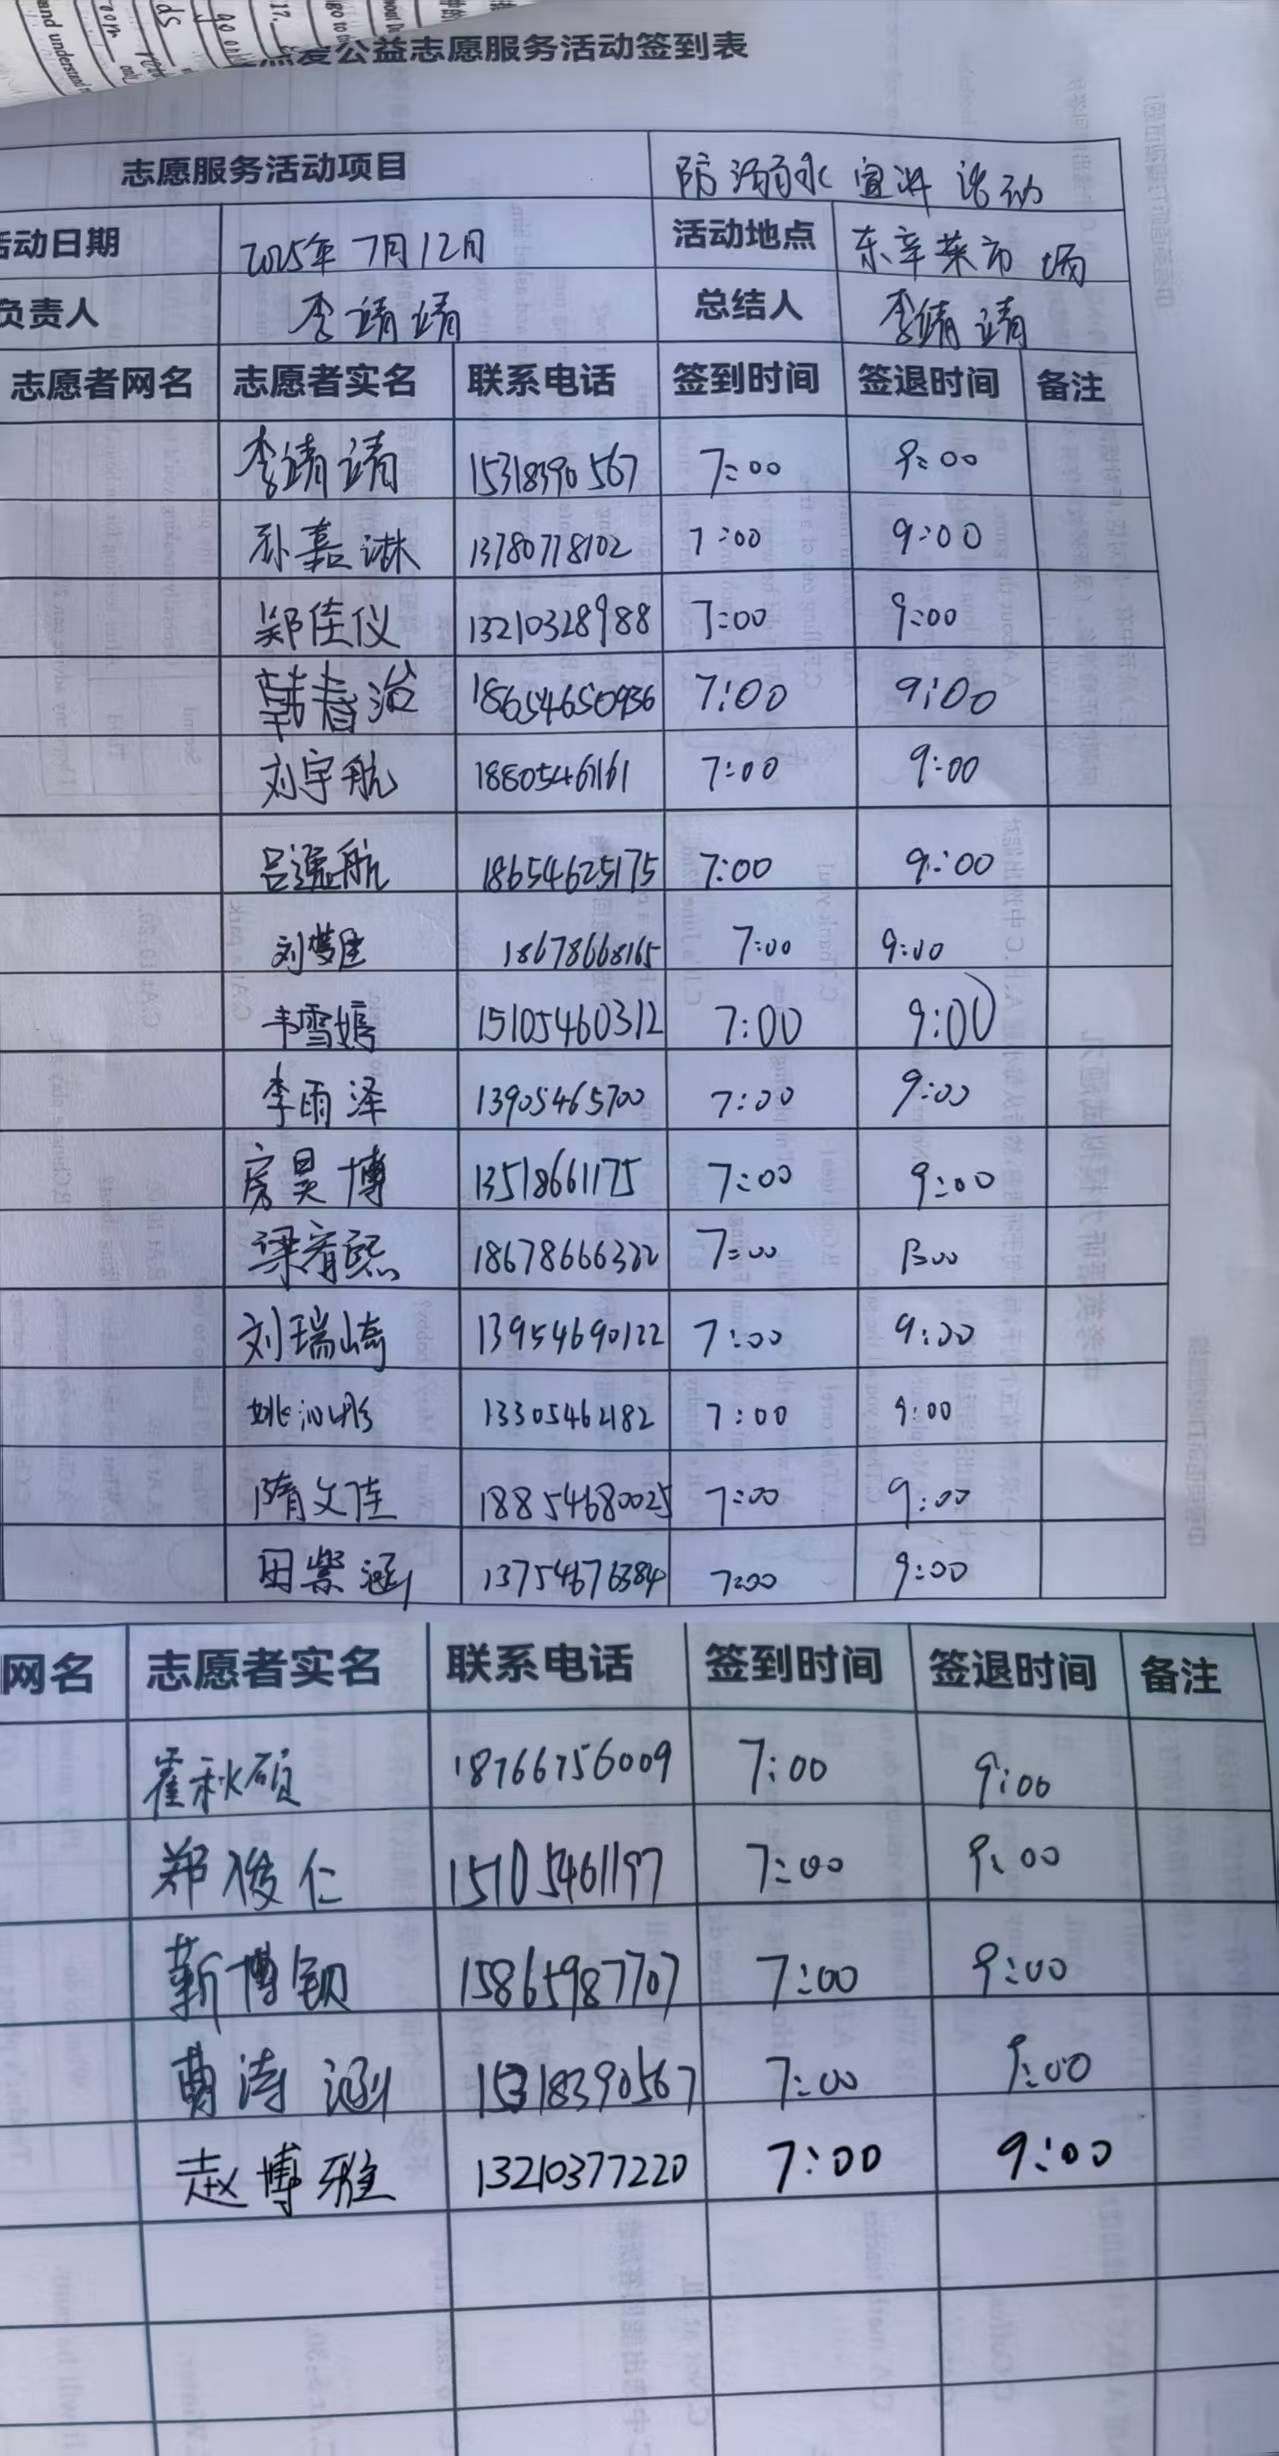 点爱公益志愿服务活动签到表
志愿服务活动项目 防溺水宣讲活动
活动日期 2025年7月12日 活动地点 东辛菜市场
负责人 李靖靖 总结人 李靖靖
志愿者网名 志愿者实名 联系电话 签到时间 签退时间 备注
李靖靖 15318390567 7:00 9:00
孙嘉淋 13780778102 7:00 9:00
郑佳仪 13210328988 7:00 9:00
韩春治 18654650936 7:00 9:00
刘宇航 18805461161 7:00 9:00
吕逸航 18654625175 7:00 9:00
刘梦佳 18678668165 7:00 9:00
韦雪嫣 15105460312 7:00 9:00
李雨泽 13905465700 7:00 9:00
房昊博 13518661175 7:00 9:00
梁宥熙 18678666322 7:00 9:00
刘瑞崎 13954690122 7:00 9:00
姚沁彤 13305462182 7:00 9:00
隋文佳 18854680025 7:00 9:00
田紫涵 13754676384 7:00 9:00
网名 志愿者实名 联系电话 签到时间 签退时间 备注
霍秋硕 18766756009 7:00 9:00
郑俊仁 15105461197 7:00 9:00
靳博钡 15865987707 7:00 9:00
曹涛涵 15318390567 7:00 9:00
赵博雅 13210377220 7:00 9:00